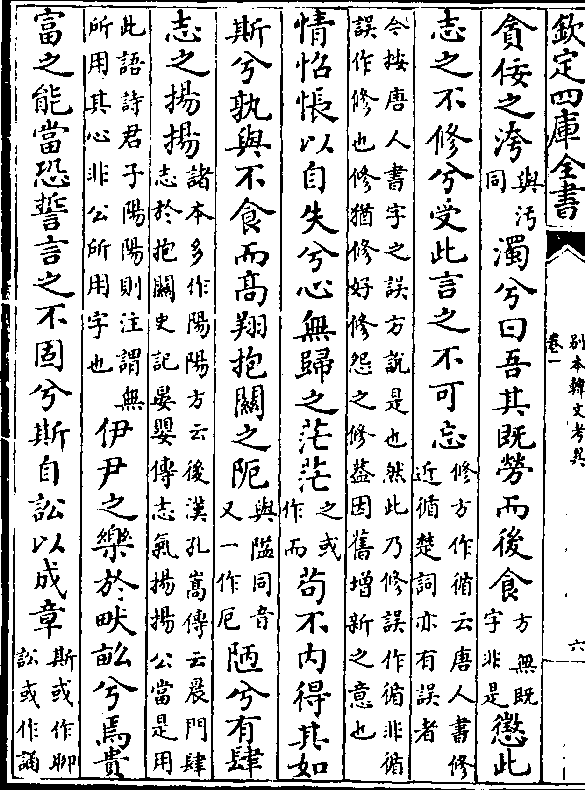 欽定四庫全書
別本韓文考異
卷一
六
貪佞之洿與汚同濁兮曰吾其既勞而後食方無既字非是懲此
志之不修兮受此言之不可忘修方作循云唐人書修近循楚詞亦有誤者
今按唐人書字之誤方說是也然此乃修誤作循非循
誤作修也修猶修好修怨之修葢因舊增新之意也
情怊悵以自失兮心無歸之茫茫之或作而茍不内得其如
斯兮孰與不食而髙翔抱關之阨與隘同音又一作厄陋兮有肆
志之揚揚諸本多作陽陽方云後漢孔嵩傳云晨門肆志於抱關史記晏嬰傳志氣揚揚公當是用
此語詩君子陽陽則注謂無所用其心非公所用字也伊尹之樂於畎畝兮焉貴
富之能當恐誓言之不固兮斯自訟以成章斯或作聊訟或作誦